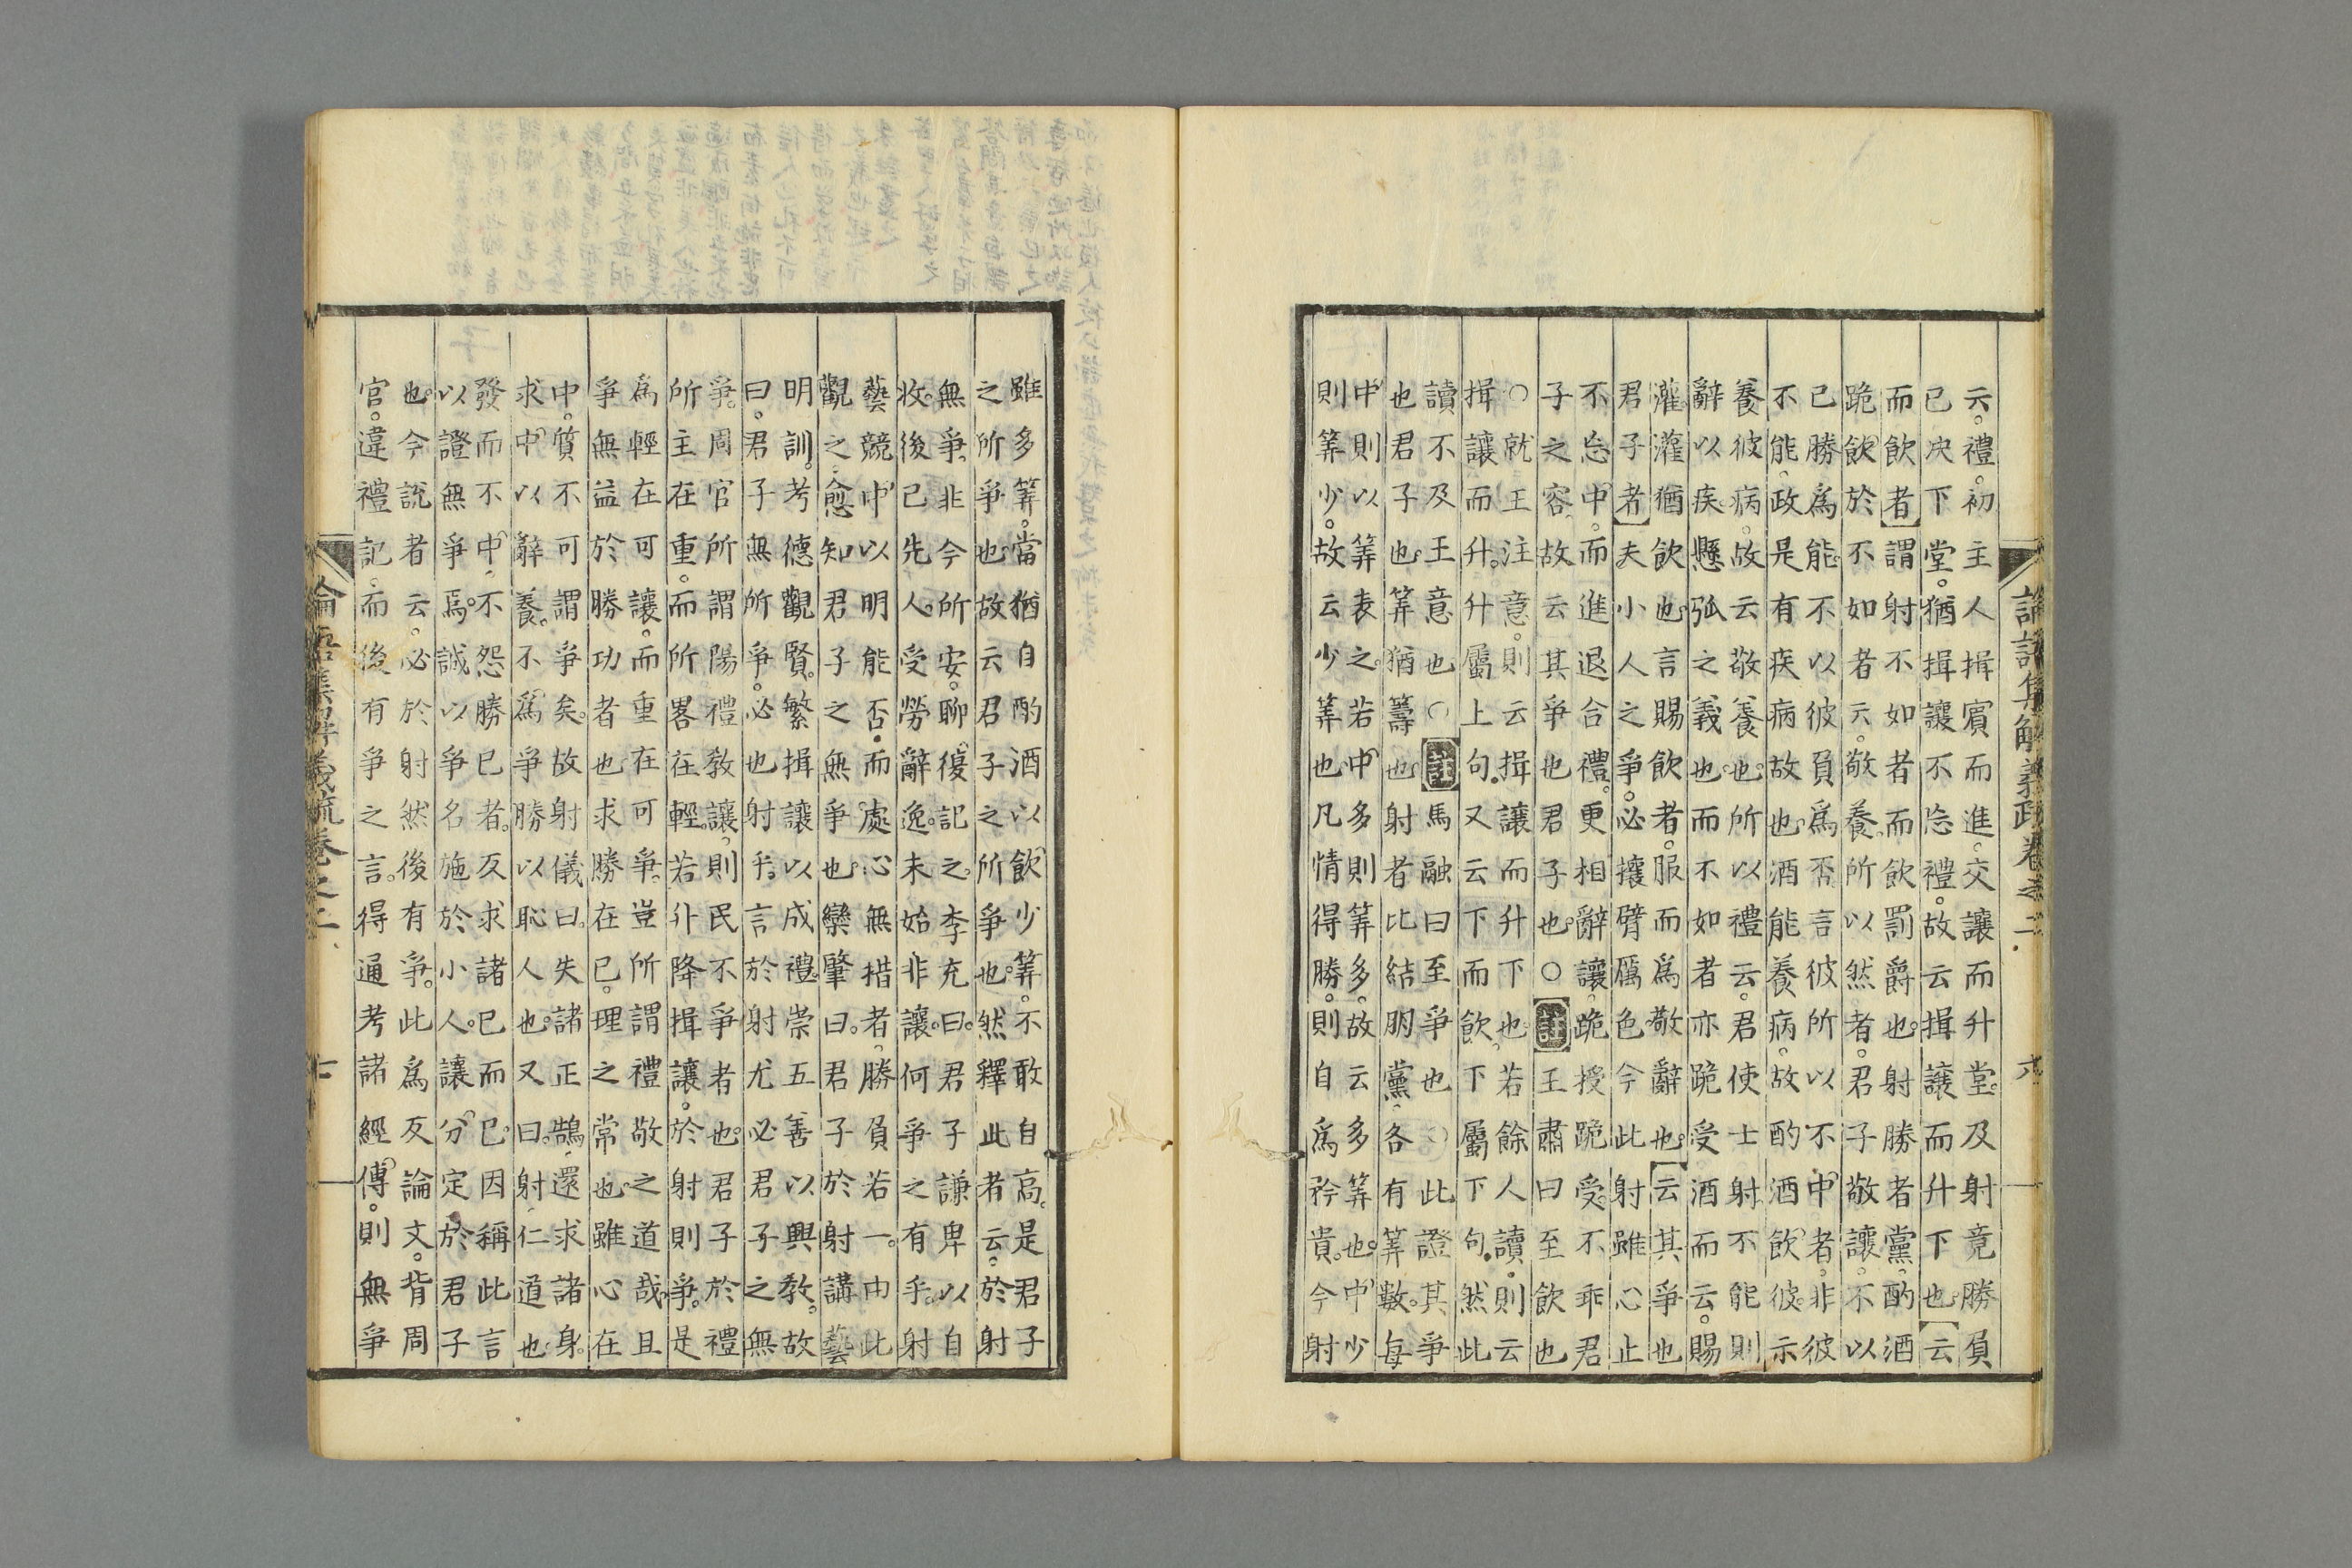 論語集解義疏卷之二 六
云。禮。初主人揖賓而進。交讓而升堂。及射竟勝負
已决下堂。猶揖讓不忘禮。故云揖讓而升下也。【云
而飲者】謂射不如者而飲罰爵也。射勝者黨。酌酒
跪飲於不如者云。敬養。所以然者。君子敬讓。不以
己勝爲能。不以彼負爲否。言彼所以不中者。非彼
不能。政是有疾病故也。酒能養病。故酌酒飲彼。示
養彼病。故云敬養也。所以禮云。君使士射。不能則
辭以疾。懸弧之義也。而不如者亦跪受酒而云。賜
灌。灌猶飲也。言賜飲者。服而爲敬辭也。【云其爭也
君子者】夫小人之爭。必攘臂厲色。今此射雖心止
不忘中。而進退合禮。更相辭讓。跪授跪受。不乖君
子之容。故云其爭也君子也。○註王肅曰至飲也
○就王注意。則云揖讓而升下也。若餘人讀。則云
揖讓而升。升屬上句。又云下而飲。下屬下句。然此
讀不及王意也○註馬融曰至爭也○此證其爭
也君子也。筭猶籌也。射者比結朋黨。各有筭數。每
中則以筭表之。若中多則筭多。故云多筭也。中少
則筭少。故云少筭也。凡情得勝。則自爲矜貴。今射
雖多筭。當猶自酌酒以飲少筭。不敢自高。是君子
之所爭也。故云君子之所爭也。然釋此者云。於射
無爭。非今所安。聊復記之。李充曰。君子謙卑以自
收。後己先人。受勞辭逸。未始非讓。何爭之有乎。射
藝競中。以明能否。而處心無措者。勝負若一。由此
觀之。愈知君子之無爭也。欒肇曰。君子於射講藝
明訓。考德觀賢。繁揖讓以成禮。崇五善以興教。故
曰。君子無所爭。必也射乎。言於射尤必君子之無
爭。周官所謂陽禮敎讓。則民不爭者也。君子於禮
所主在重。而所畧在輕。若升降揖讓。於射則爭。是
爲輕在可讓。而重在可爭。豈所謂禮敬之道哉。且
爭無益於勝功者也。求勝在己。理之常也。雖心在
中。質不可謂爭矣。故射儀曰。失諸正鵠。還求諸身。
求中以辭養。不爲爭勝以恥人也。又曰。射。仁道也
發而不中。不怨勝己者。反求諸己而已。因稱此言
以證無爭焉。誠以爭名施於小人。讓分定於君子
也。今說者云。必於射然後有爭。此爲反論文。背周
官。違禮記。而後有爭之言。得通考諸經傳。則無爭
論語集解義疏卷之二 七